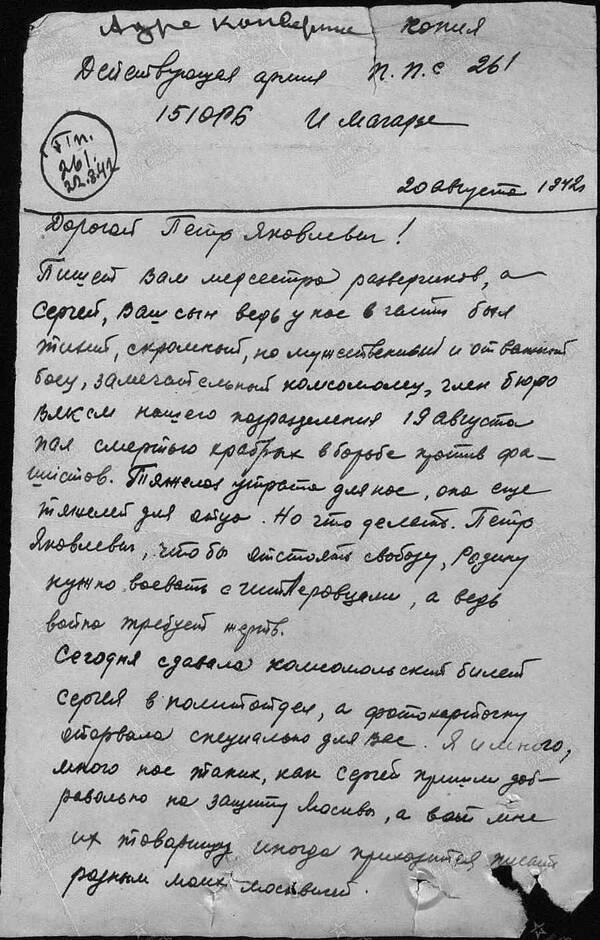 Адре конверта копия
Действующая армия п.п.с 261
151 ОРБ И Магарде
П п.
261.
22.8.42
20 августа 1942г
Дорогой Петр Яковлевич!
Пишет Вам медсестра разведчиков, а
Сергей, Ваш сын ведь у нас в части был
тихий, скромный, но мужественный и отважный
боец, замечательный комсомолец, член бюро
ВЛКСМ нашего подразделения 19 августа
пал смертью храбрых в борьбе против фа-
шистов. Тяжелая утрата для нас, она еще
тяжелей для отца. Но что делать. Петр
Яковлевич, чтобы отстоять свободу, Родину
нужно воевать с гитлеровцами, а ведь
война требует жертв.
Сегодня сдавала комсомольский билет
Сергея в политотдел, а фотокарточку
оторвала специально для Вас. Я и много,
много нас таких, как Сергей пришли доб-
равольно на защиту Москвы, а вот мне
их товарищу иногда приходится писать
родным моих москвичей.